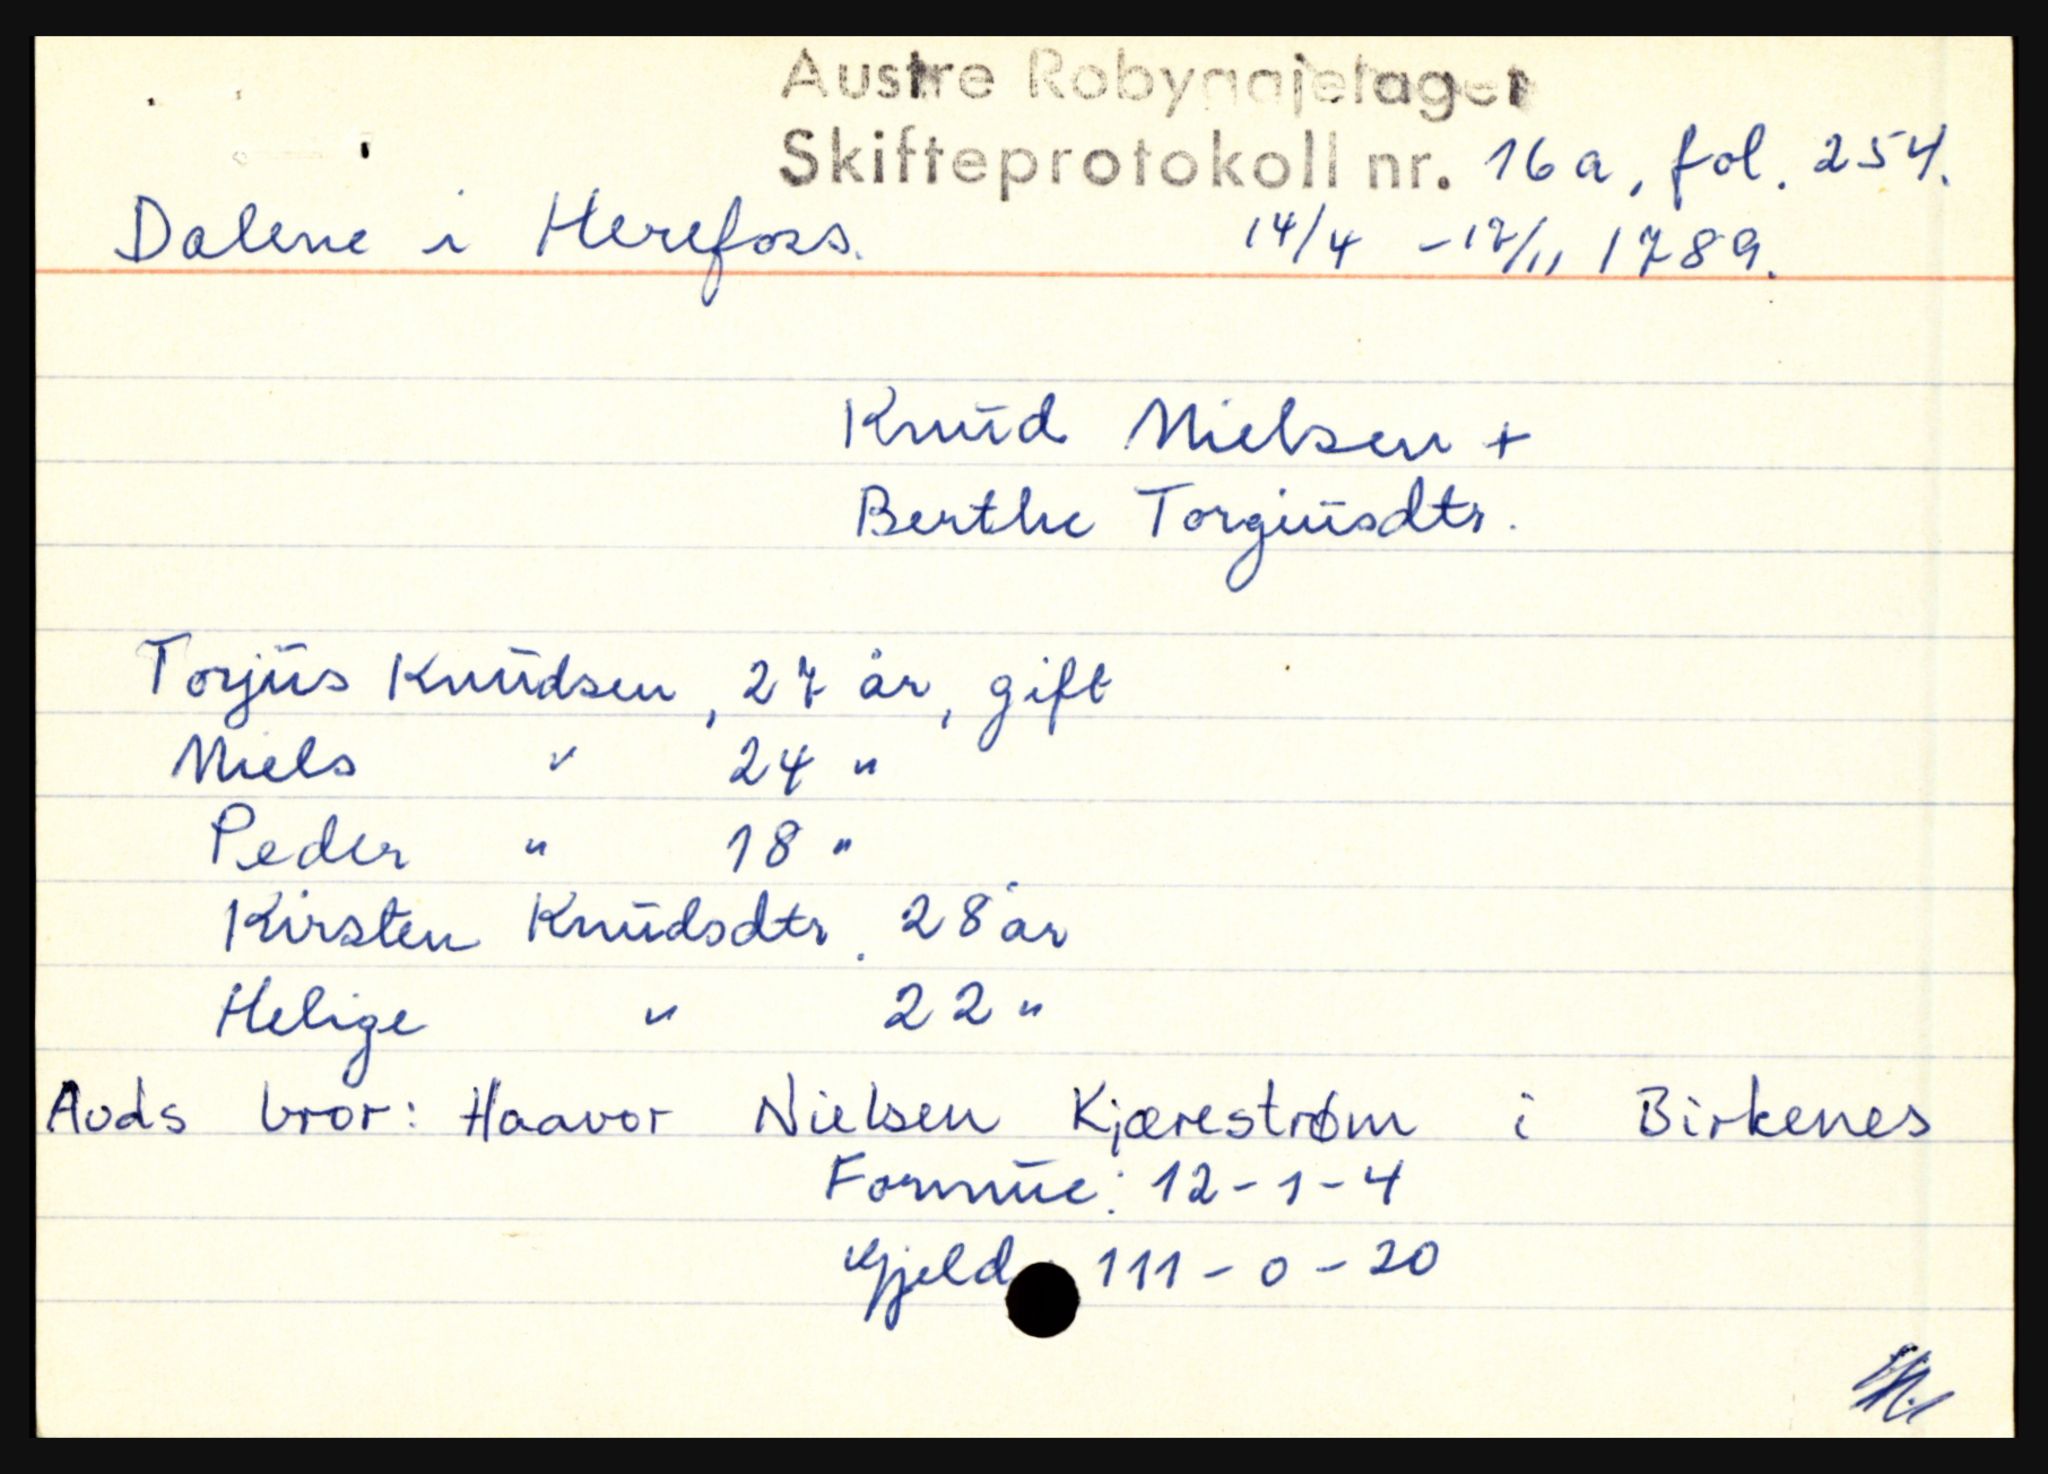 Austre Robyggjelaget
Skifteprotokoll nr. 16a, fol. 254.
Dalene i Herefoss. 14/4 - 17/11 1789.
Knud Nielsen +
Berthe Torgiusdtr.
Torjus Knudsen, 27 år, gift
Niels " 24 "
Peder " 18 "
Kirsten Knudsdtr. 28 år
Helige " 22 "
Avds bror: Haavor Nielsen Kjærestrøm i Birkenes
Formue: 12-1-4
Gjeld 111-0-20